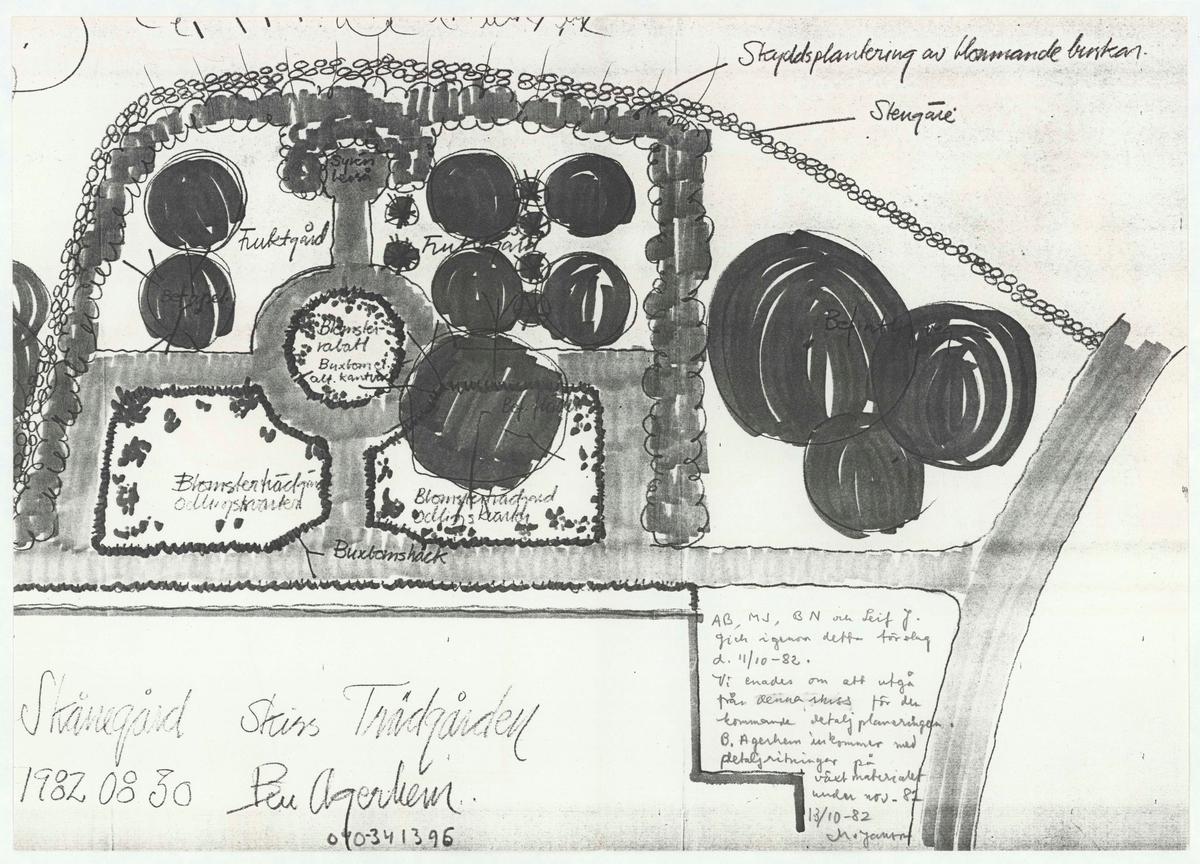 Skyddsplantering av blommande buskar.
Stengärde
Syrén
berså
Fruktgård
Fruktgård
Bef.
Blomster-
rabatt
Buxbom el.
alt. kantväxt
Bef.
Blomsterträdgård
Odlingskvarter
Blomsterträdgård
Odlingskvarter
Buxbomshäck
AB, MJ, BN och Leif J.
gick igenom detta förslag
d. 11/10-82.
Vi enades om att utgå
från denna skiss för den
kommande detaljplaneringen.
B. Agerhem inkommer med
detaljritningar på
växtmaterialet
under nov.-82
13/10-82
Skånegård Skiss Trädgården
1982 08 30 Agerhem.
040-341396